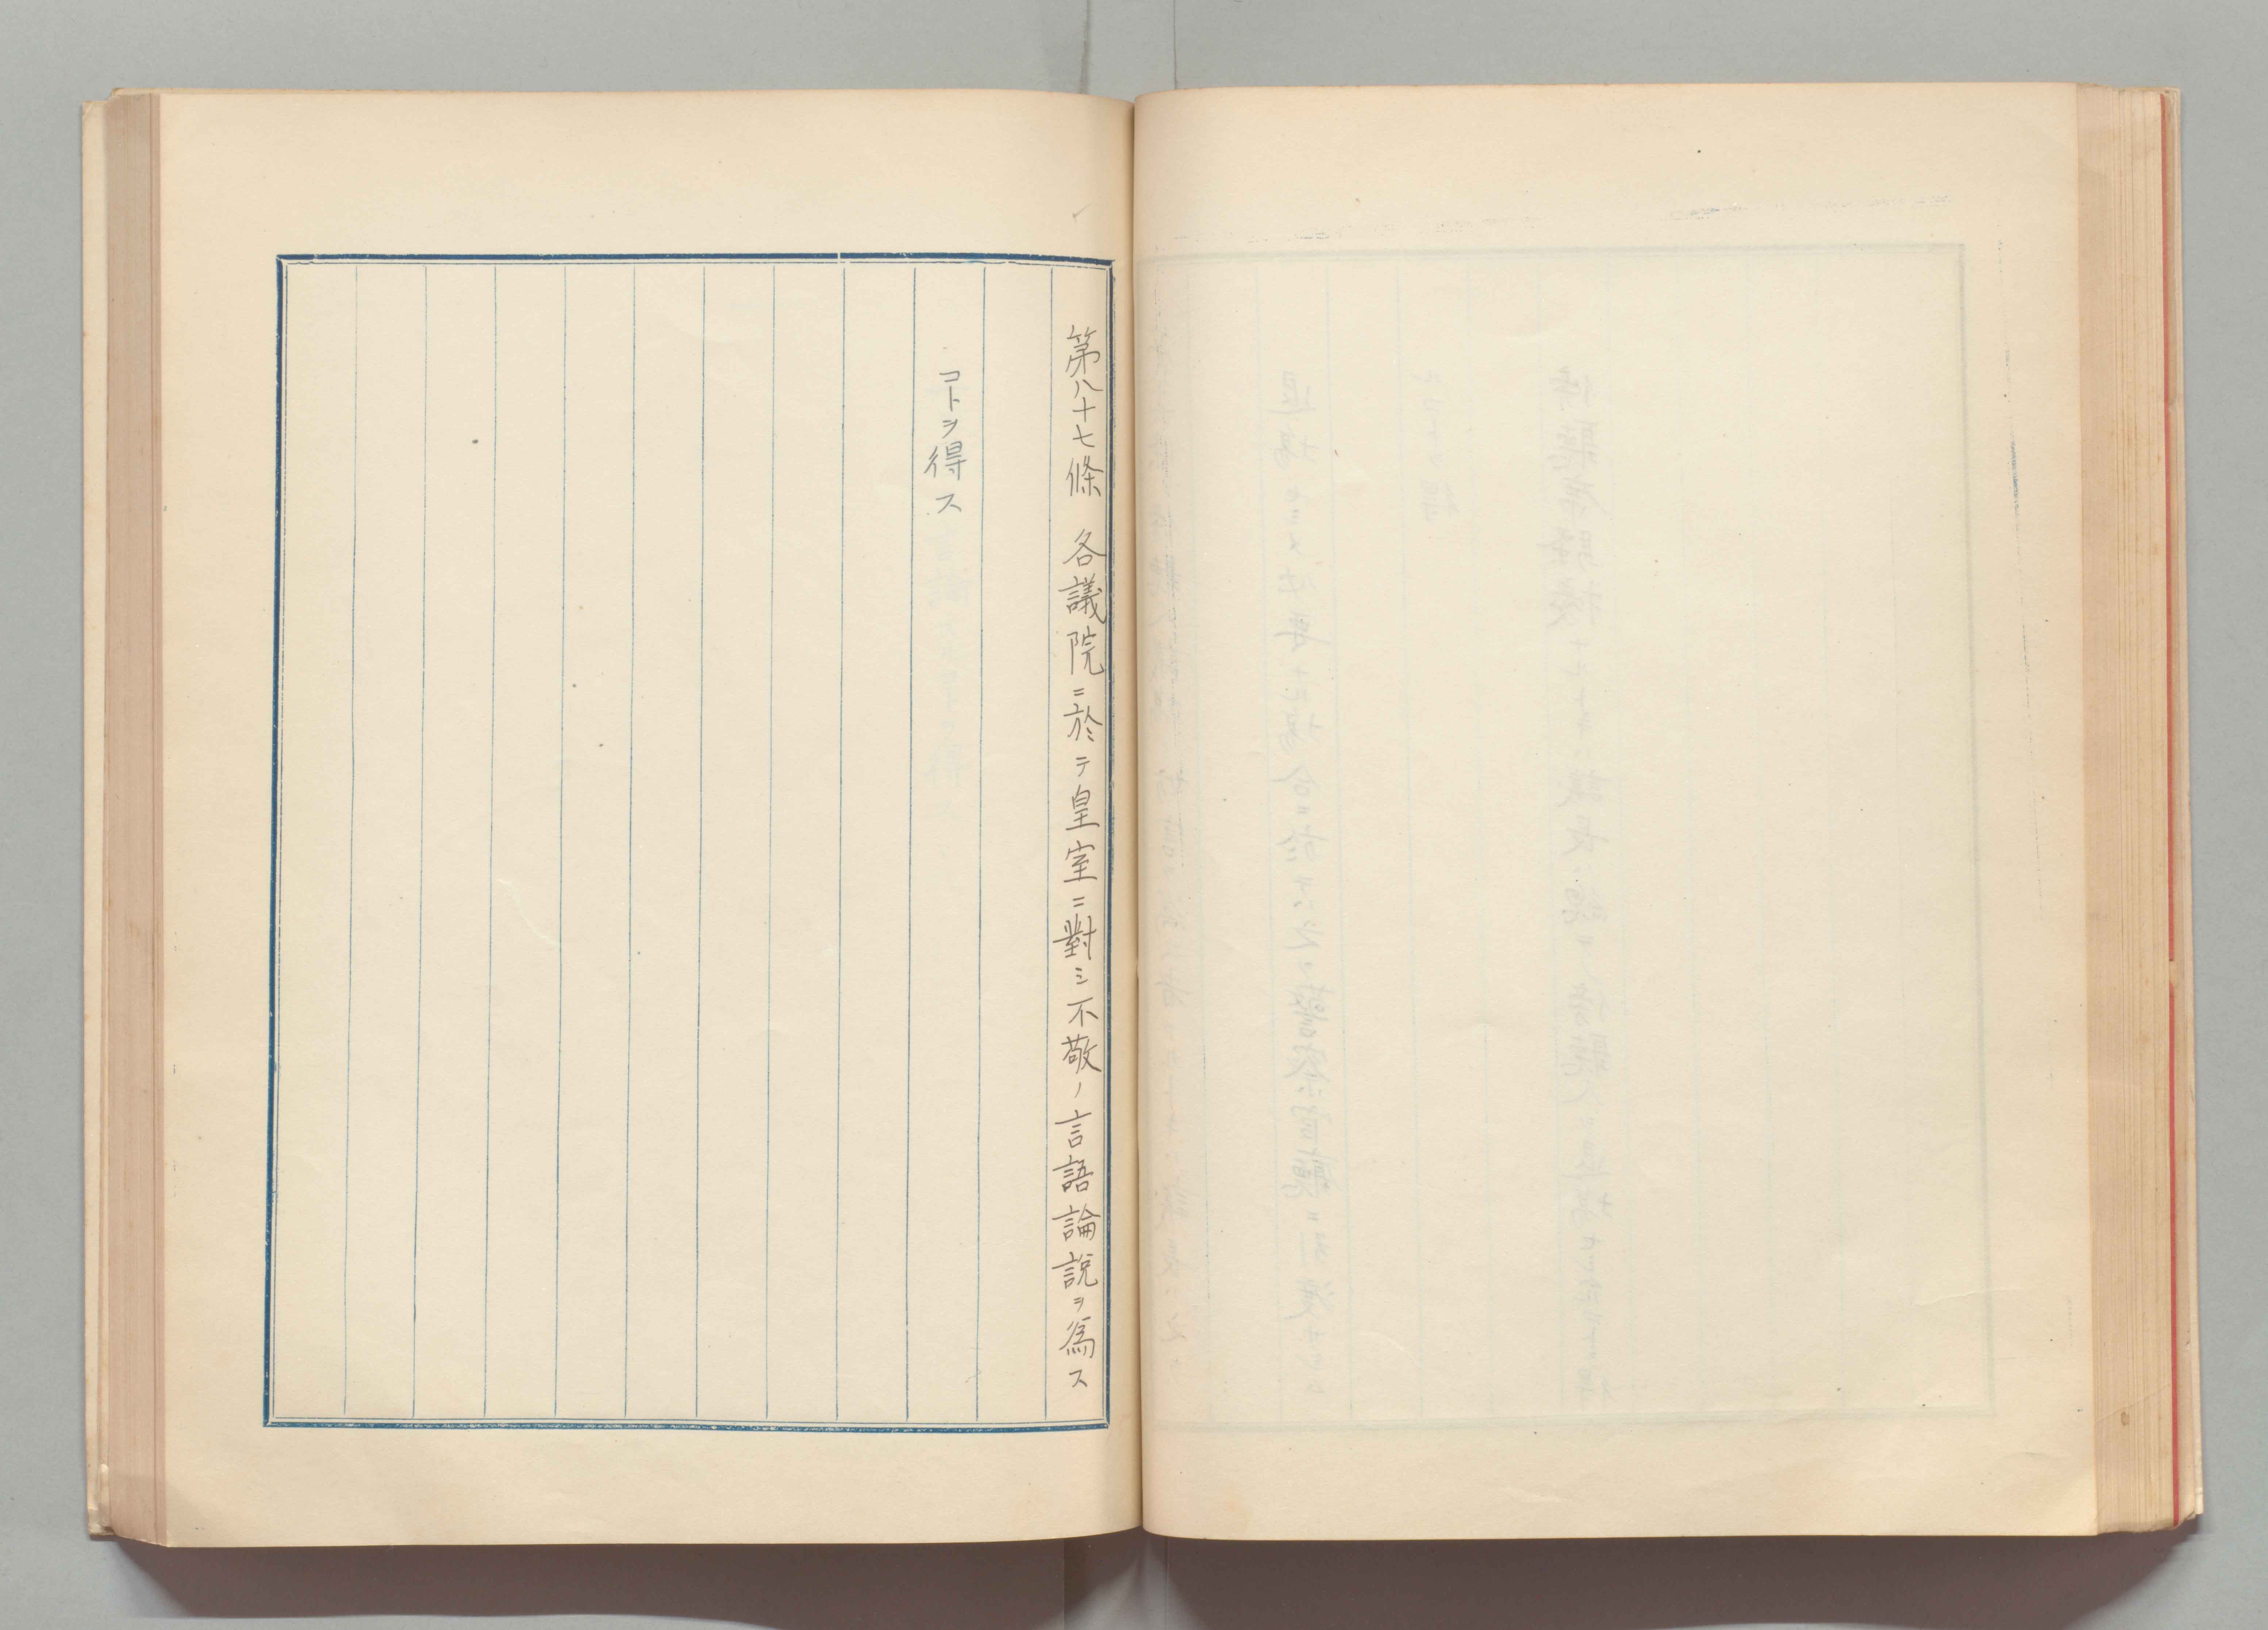 第八十七條　各議院ニ於テ皇室ニ對シ不敬ノ言語論說ヲ爲ス
コトヲ得ス